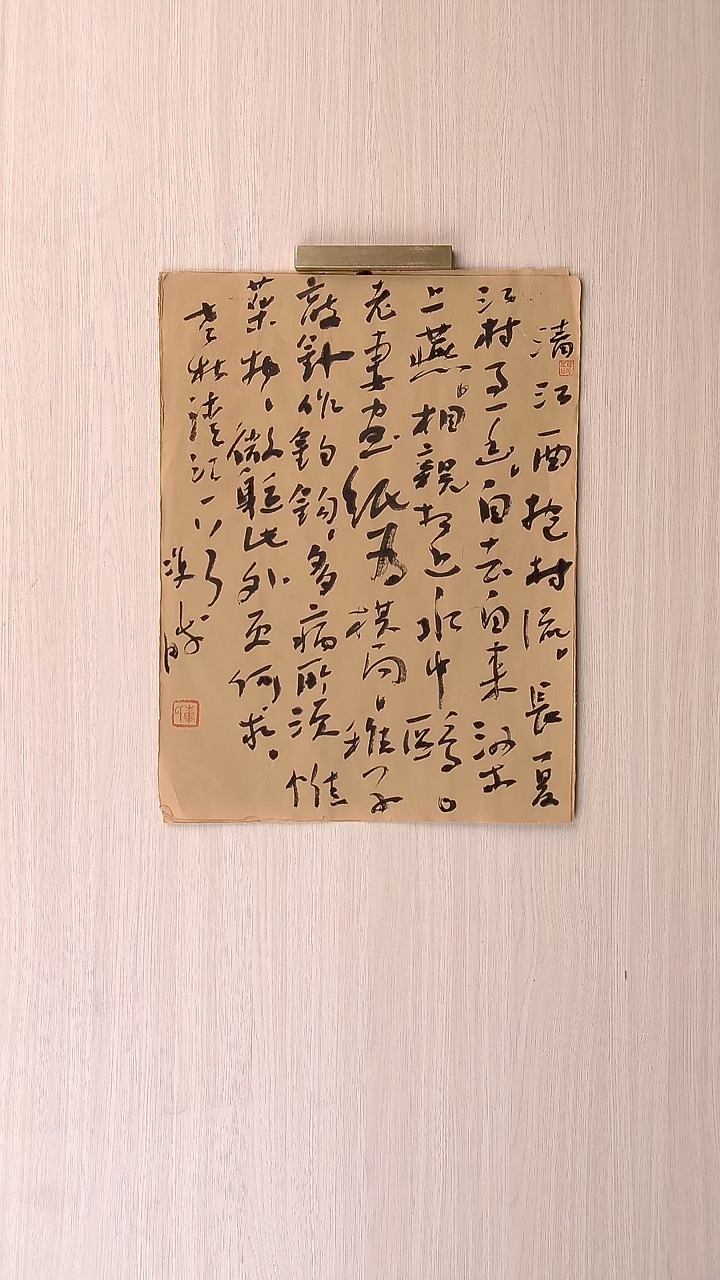 清江一曲抱村流。長夏
江村事々幽。自去自来梁
上燕。相親相近水中鷗。
老妻画紙為棋局。稚子
敲針作釣鈎。多病所須惟
藥物、微軀此外更何求。
老杜